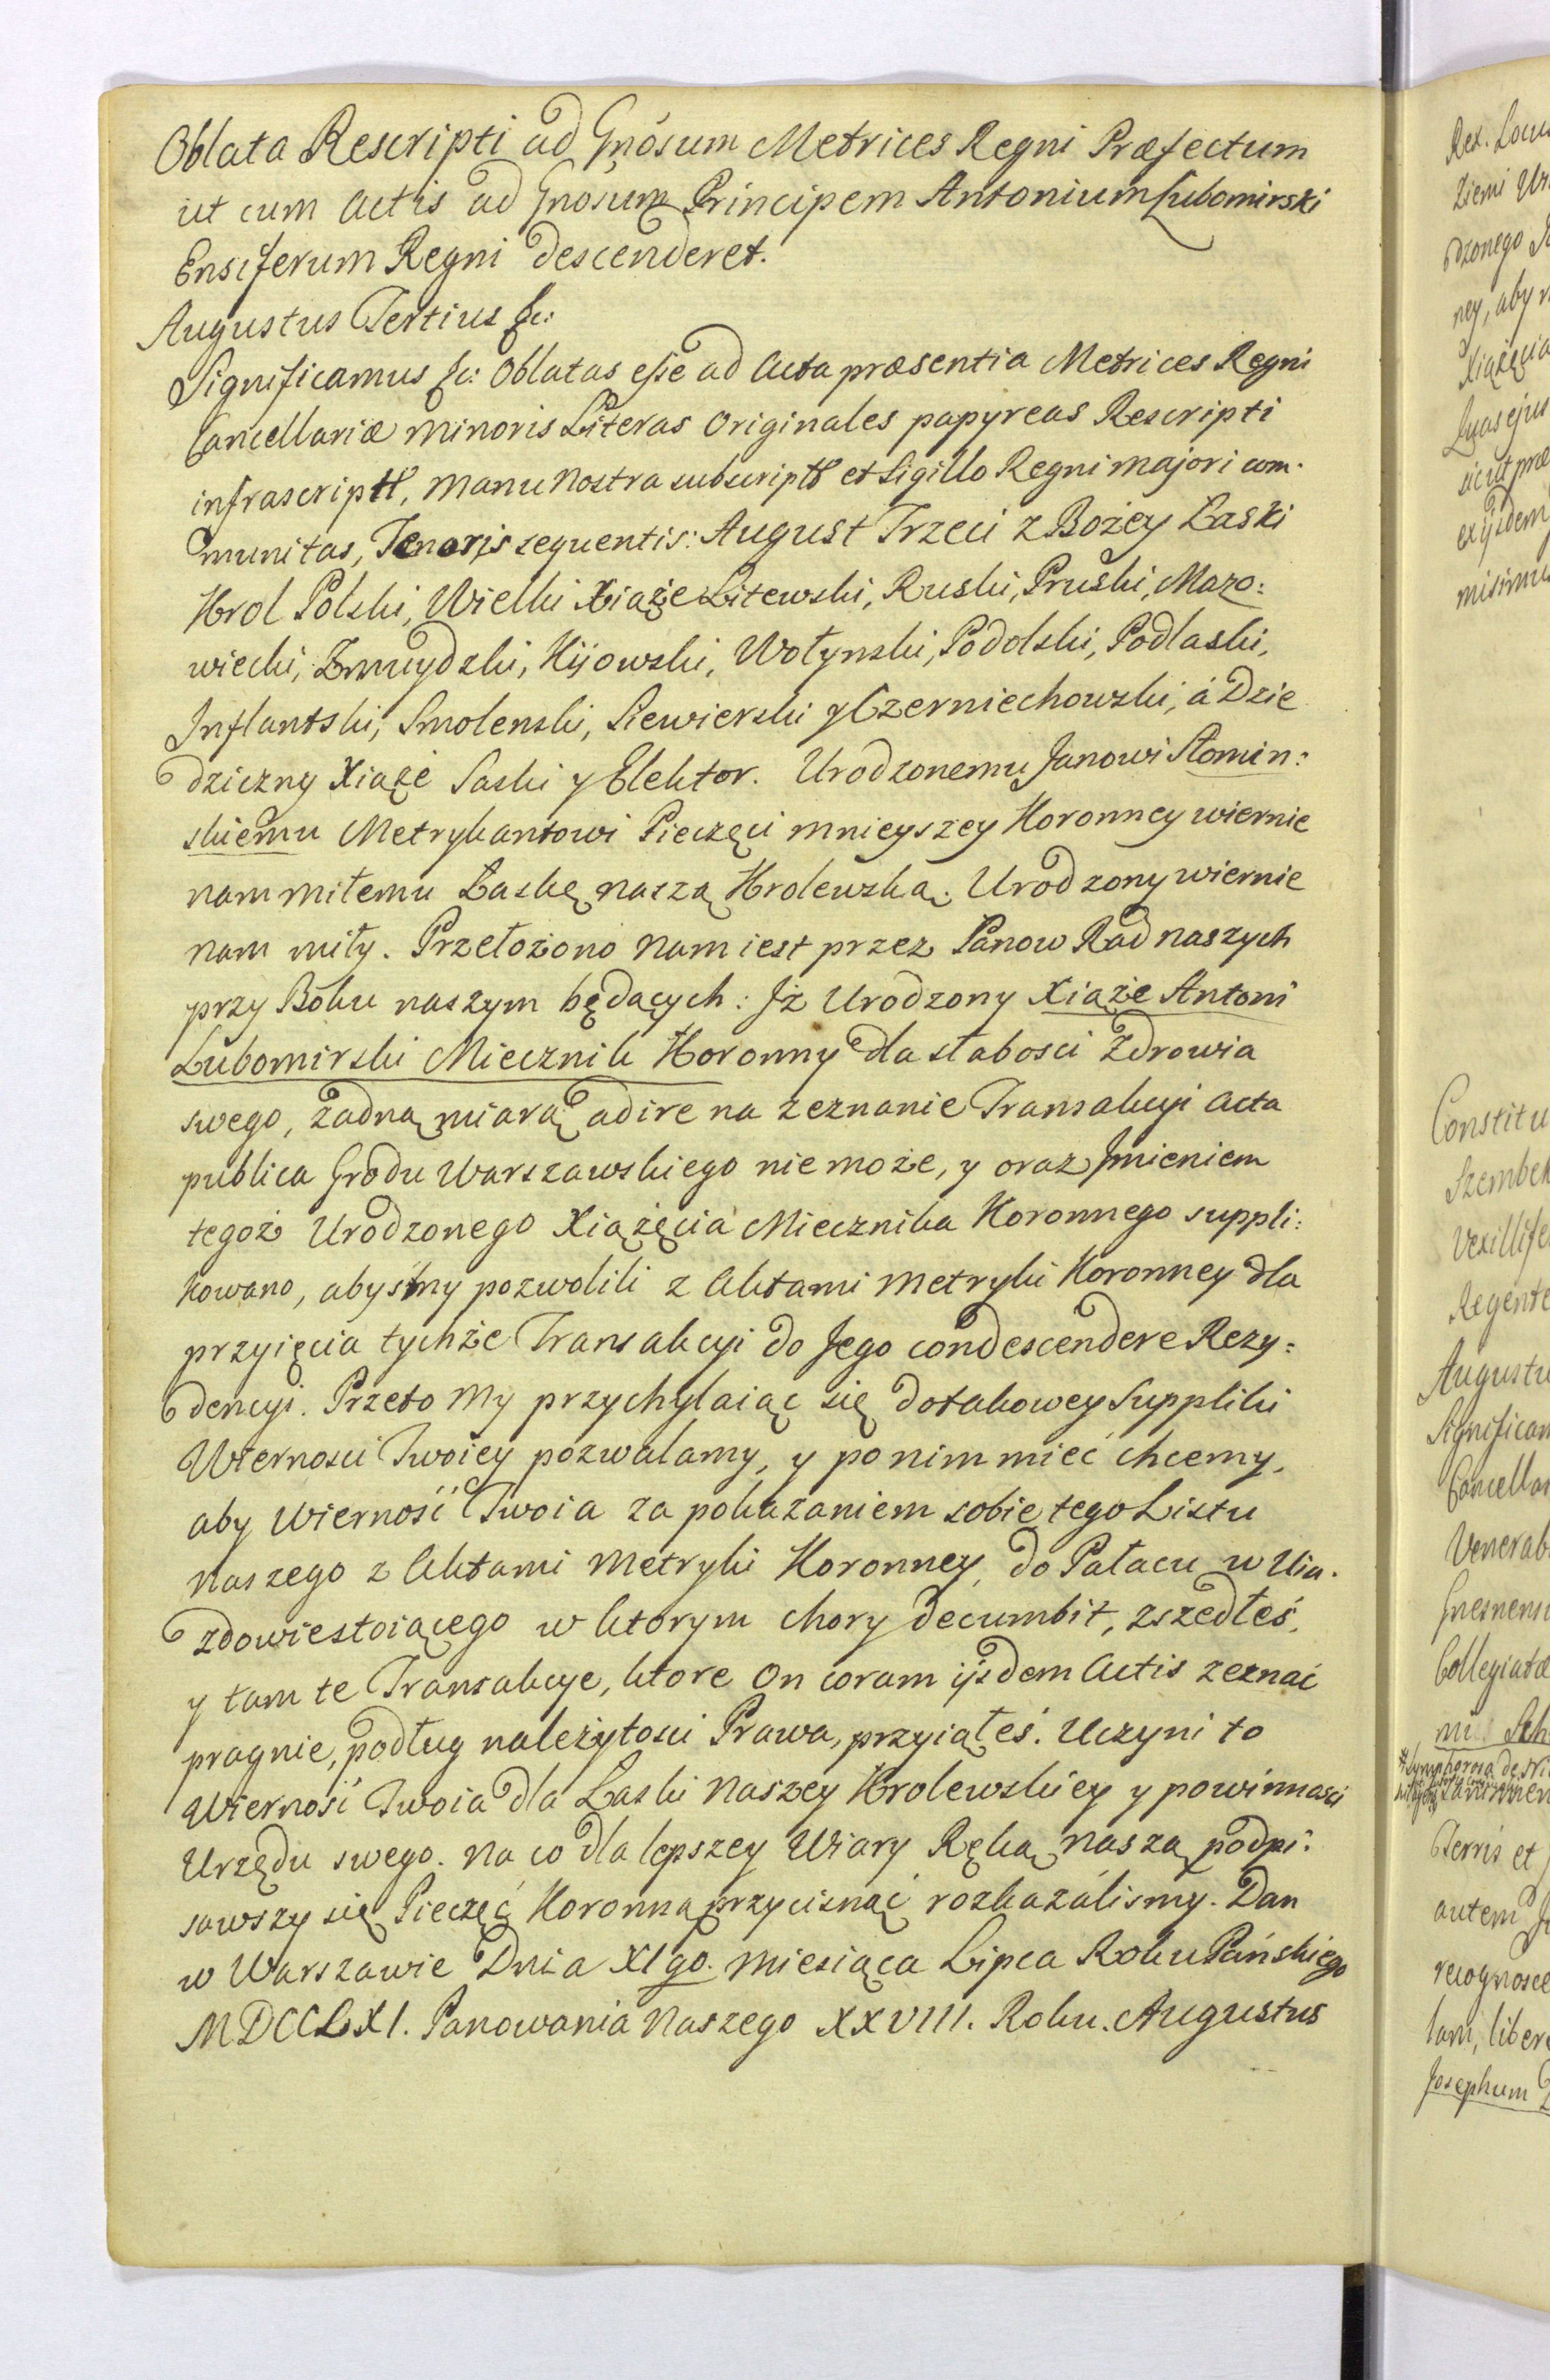 Oblata Rescripti ad Gnosum Metrices Regni Præfectum
ut cum Actis ad Gnosum Principem Antonium Lubomirski
Ensiferum Regni descenderet.
Augustus Tertius &c:
Significamus &c: Oblatas esse ad Acta præsentia Metrices Regni
Cancellariæ Minoris Literas Originales papyreas Rescripti
infrascriptt, Manu Nostra subscriptt et Sigillo Regni majori com-
munitas, Tenoris sequentis: August Trzeci z Bożey Łaski
Krol Polski, Wielki Xiąże Litewski, Ruski, Pruski, Mazo:
wiecki, Zmuydzki, Kijowski, Wołynski, Podolski, Podlaski,
Inflantski, Smolenski, Siewierski y Czerniechowski, á Dzie
dziczny Xiąże Saski y Elektor. Urodzonemu Janowi Słomin:
skiemu Metrykantowi Pieczęci mnieyszey Koronney wiernie
nam miłemu Łaskę naszą Krolewską. Urodzony wiernie
nam miły. Przełożono Nam iest przez Panow Rad naszych
przy Boku naszym będących: Jż Urodzony Xiąże Antoni
Lubomirski Miecznik Koronny dla słabosci Zdrowia
swego, żadną miarą adire na zeznanie Transakcyi Acta
publica Grodu Warszawskiego nie może, y oraz Jmieniem
tegoż Urodzonego Xiążęcia Miecznika Koronnego suppli:
kowano, abysmy pozwolili z Aktami Metryki Koronney dla
przyięcia tychże Transakcyi do Jego condescendere Rezy:
dencyi. Przeto My przychylaiąc się do takowey Suppliki
Wiernosci Twoiey pozwalamy, y po nim mieć chcemy,
aby Wierność Twoia za pokazaniem sobie tego Listu
Naszego z Aktami Metryki Koronney do Pałacu w Uia-
zdowie stoiącego w ktorym chory decumbit, zszedłeś,
y tam te Transakcye, ktore On coram ijsdem Actis zeznać
pragnie, podług należytosci Prawa, przyiąłeś. Uczyni to
Wierność Twoia dla Łaski Naszey Krolewskiey y powinnosci
Urzędu swego. Na co dla lepszey Wiary Ręką Naszą podpi:
sawszy się Pieczęć Koronną przycisnąć rozkazálismy. Dan
w Warszawie Dnia XIgo. Miesiąca Lipca Roku Pańskiego
MDCCLXI. Panowania Naszego XXVIII. Roku. Augustus
Rex. Locus
Ziemi
dzonego
ney, aby
Xiążęcia
Quas ejus
sicut præ
ex ijsdem
misimus
Constitu
Szembek
Vexillife
Regente
Augustu
Significam
Cancellar
Venerab
Gnesnens
Collegiatæ
Terris et
autem
recognosce
tam, liber
Josephum